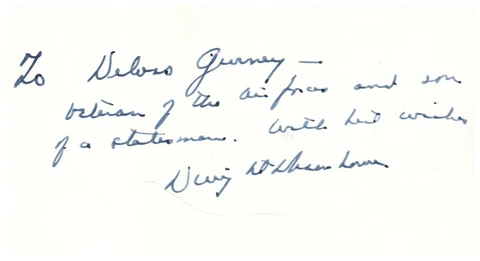 To Deloss Gurney —
veteran of the air force and son
of a statesman. With best wishes
Dwight D Eisenhower